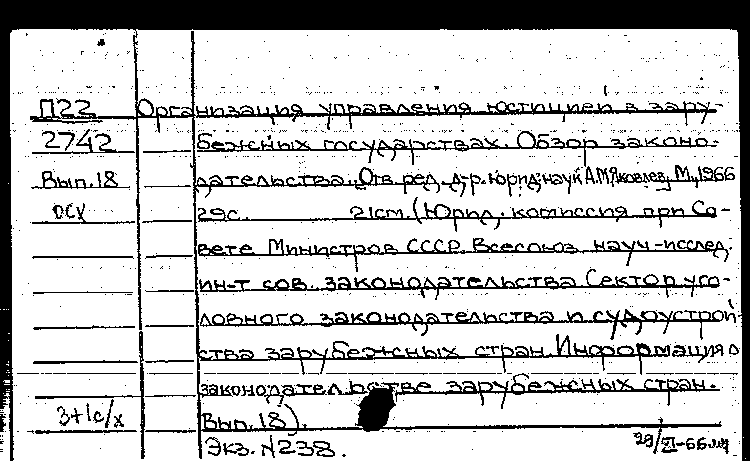 П22 Организация управления юстицией в зару-
2742 бежных государствах. Обзор законо-
Вып.18 дательства. Отв. ред. д-р. юрид. наук А.М. Яковлев. М., 1966
29с. 21см. (Юрид. комиссия при Со-
вете Министров СССР. Всесоюз. науч-исслед.
ин-т сов. законодательства Сектор уго-
ловного законодательства и судоустрой-
ства зарубежных стран. Информация о
законодательстве зарубежных стран.
3+1с/х Вып. 18).
Экз. N238.